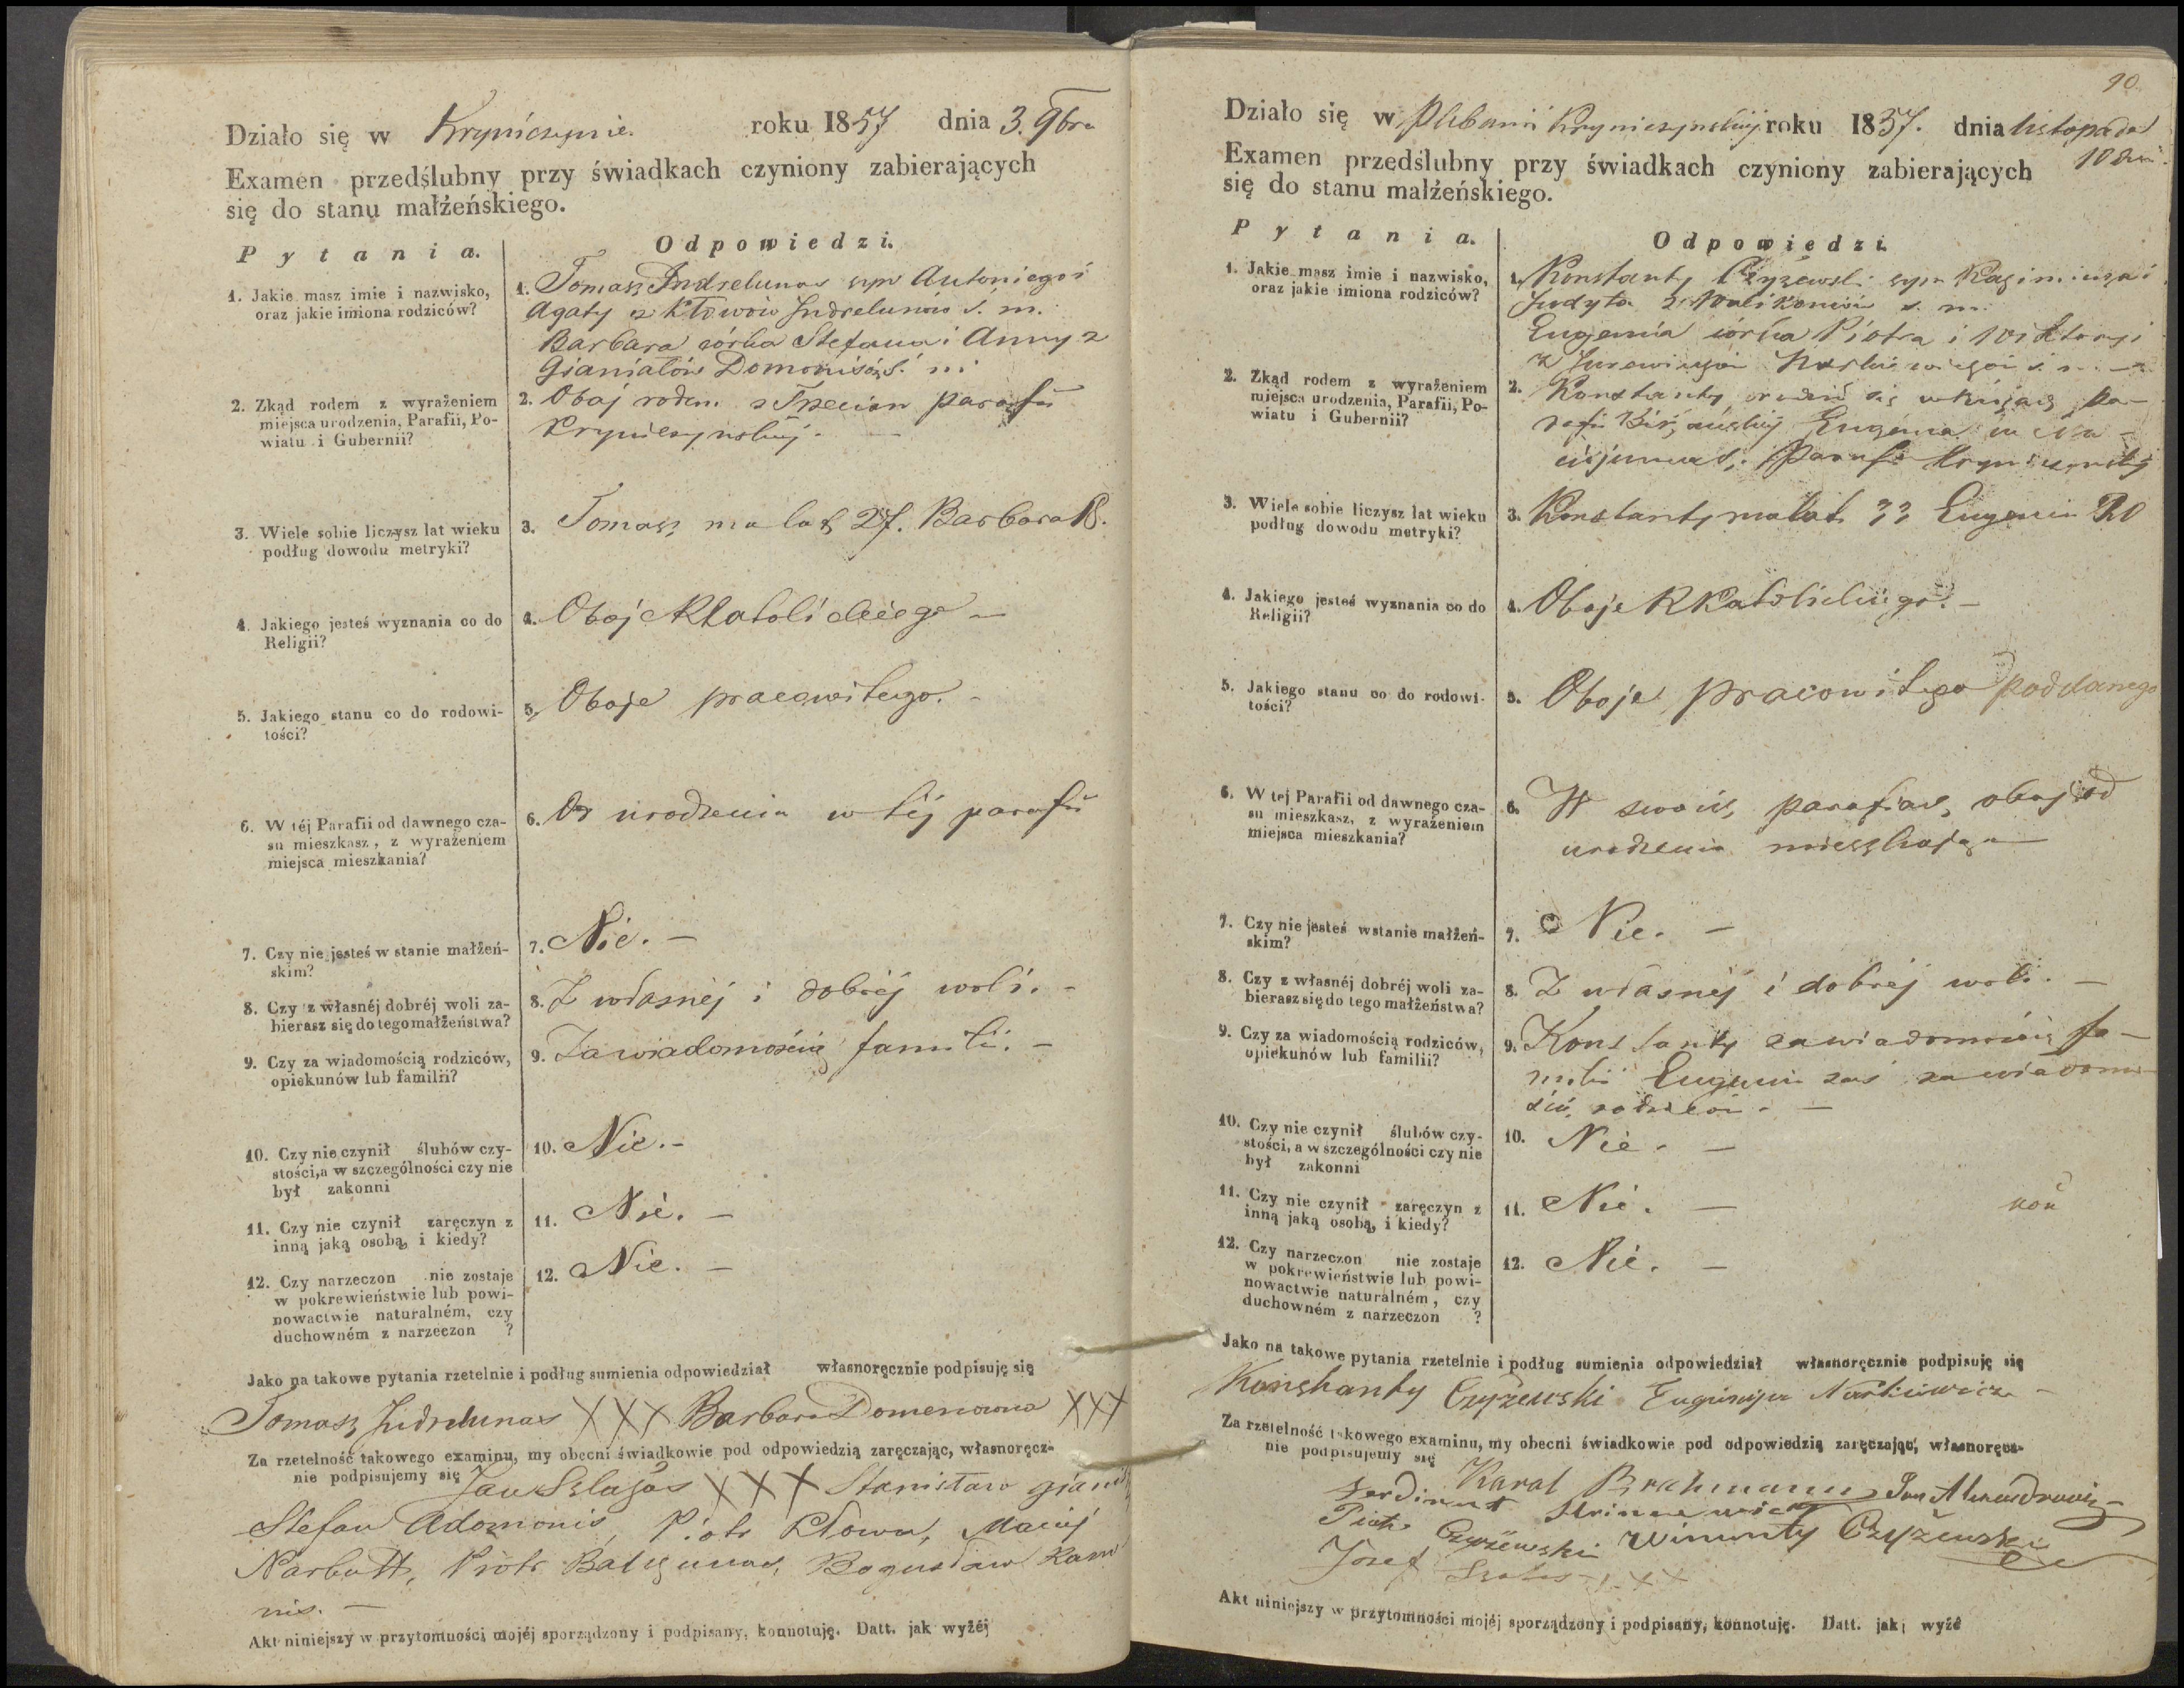 Działo się w Kryniczynie. roku 1857 dnia 3. 9bra
Examen przedślubny przy świadkach czyniony zabierających
się do stanu małżeńskiego.
Pytania. Odpowiedzi.
1. Jakie masz imie i nazwisko,
oraz jakie imiona rodziców?
1. Tomasz Indrelunas syn Antoniego i
Agaty z Kłowów Indrelunów s. m.
Barbara córka Stefana i Anny z
Gianiałów s. m.
2. Zkąd rodem z wyrażeniem
miejsca urodzenia, Parafii, Po-
wiatu i Gubernii?
2. Obój rodem z parafii
Kryniczynskiej. —
3. Wiele sobie liczysz lat wieku
podług dowodu metryki?
3. Tomasz ma lat 27. Barbara 18.
4. Jakiego jesteś wyznania co do
Religii?
4. Oboje RKatolickiego —
5. Jakiego stanu co do rodowi-
tości?
5. Oboje pracowitego. -
6. W téj Parafii od dawnego cza-
su mieszkasz, z wyrażeniem
miejsca mieszkania?
6. Od urodzenia w téj parafii
7. Czy nie jesteś w stanie małżeń-
skim?
7. Nie. —
8. Czy z własnéj dobréj woli za-
bierasz się do tego małżeństwa?
8. Z własnéj i dobréj woli. -
9. Czy za wiadomością rodziców,
opiekunów lub familii?
9. Za wiadomością familii. -
10. Czy nie czynił ślubów czy-
stości, a w szczególności czy nie
był zakonni
10. Nie. -
11. Czy nie czynił zaręczyn z
inną jaką osobą, i kiedy?
11. Nie. —
12. Czy narzeczon nie zostaje
w pokrewieństwie lub powi-
nowactwie naturalném, czy
duchowném z narzeczon ?
12. Nie. —
Jako na takowe pytania rzetelnie i podług sumienia odpowiedział własnoręcznie podpisuję się
Tomasz Indrelunas XXX Barbara Domenowna XXX
Za rzetelność takowego examinu, my obecni świadkowie pod odpowiedzią zaręczając, własnoręcz-
nie podpisujemy się
Jan Szlagas XXX Stanisław
Stefan Adomonis, Piotr Kłowa, Maciej
Narbutt, Piotr Bogusław
nis. —
Akt niniejszy w przytomności mojéj sporządzony i podpisany, konnotuję. Datt. jak wyżéj
90
Działo się w Plebanii Kryniczynskiej roku 1857. dnia listopada
10 dnia
Examen przedślubny przy świadkach czyniony zabierających
się do stanu małżeńskiego.
Pytania. Odpowiedzi.
1. Jakie masz imie i nazwisko,
oraz jakie imiona rodziców?
1. Konstanty Czyżewski syn Kazimierza i
Judyta z s. m.
Eugenia córka Piotra i Wiktoryi
z Jurewiczów s. m. —
2. Zkąd rodem z wyrażeniem
miejsca urodzenia, Parafii, Po-
wiatu i Gubernii?
2. Konstanty urodził się pa-
rafii Birżańskiej Eugenia w
Parafii Kryniczynskiej
3. Wiele sobie liczysz lat wieku
podług dowodu metryki?
3. Konstanty ma lat 33 Eugenia 20
4. Jakiego jesteś wyznania co do
Religii?
4. Oboje RKatolickiego. —
5. Jakiego stanu co do rodowi-
tości?
5. Oboje pracowitego poddanego
6. W tej Parafii od dawnego cza-
su mieszkasz, z wyrażeniem
miejsca mieszkania?
6. W swoich parafiach oboje od
urodzenia mieszkają —
7. Czy nie jesteś wstanie małżeń-
skim?
7. Nie. —
8. Czy z własnéj dobréj woli za-
bierasz się do tego małżeństwa?
8. Z własnéj i dobréj woli. —
9. Czy za wiadomością rodziców,
opiekunów lub familii?
9. Konstanty za wiadomością fa-
milii Eugenia zaś za wiadomo-
ścią rodziców. —
10. Czy nie czynił ślubów czy-
stości, a w szczególności czy nie
był zakonni
10. Nie. —
11. Czy nie czynił zaręczyn z
inną jaką osobą, i kiedy?
11. Nie. —
12. Czy narzeczon nie zostaje
w pokrewieństwie lub powi-
nowactwie naturalném, czy
duchowném z narzeczon ?
12. Nie. —
Jako na takowe pytania rzetelnie i podług sumienia odpowiedział własnoręcznie podpisuję się
Konstanty Czyżewski Narkiewicz —
Za rzetelność takowego examinu, my obecni świadkowie pod odpowiedzią zaręczając, własnoręcz-
nie podpisujemy się
Karol Brahmann
Ferdinant
Piotr Czyżewski Wincenty Czyżewski
Józef XX
Akt niniejszy w przytomności mojéj sporządzony i podpisany, konnotuję. Datt. jak wyżé